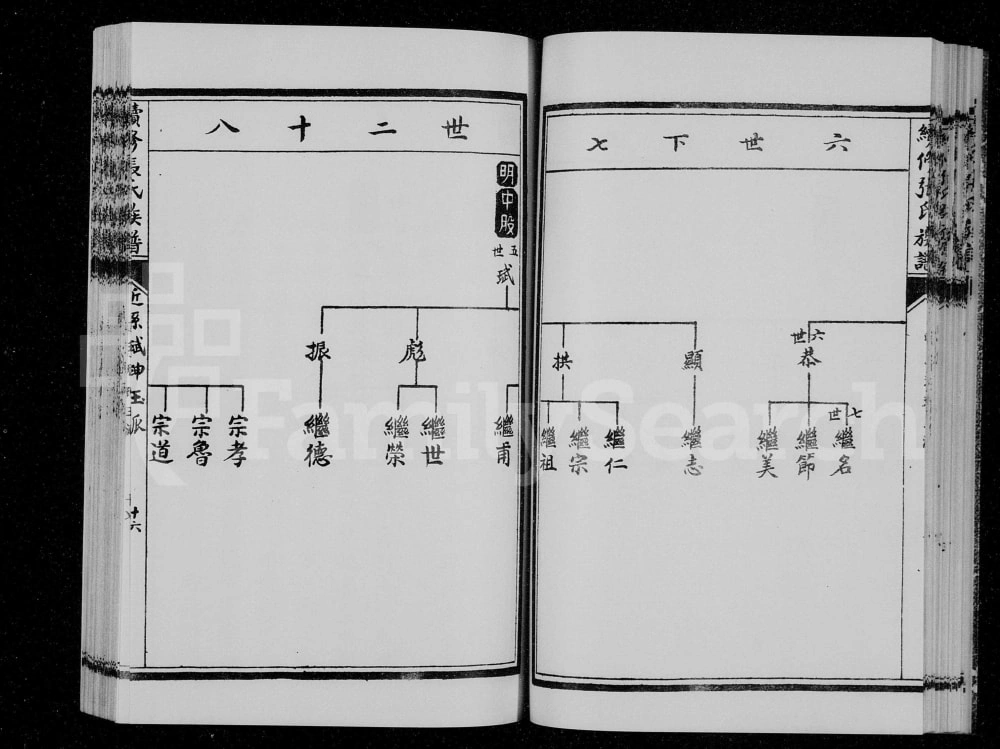 續修張氏族譜
六世下七
六世
恭
顯
拱
七世
繼名
繼節
繼美
繼志
繼仁
繼宗
繼祖
世二十八
明中股
五世
斌
彪
振
繼甫
繼世
繼榮
繼德
宗孝
宗魯
宗道
續修張氏族譜
近系斌坤玉派
十六
FamilySearch